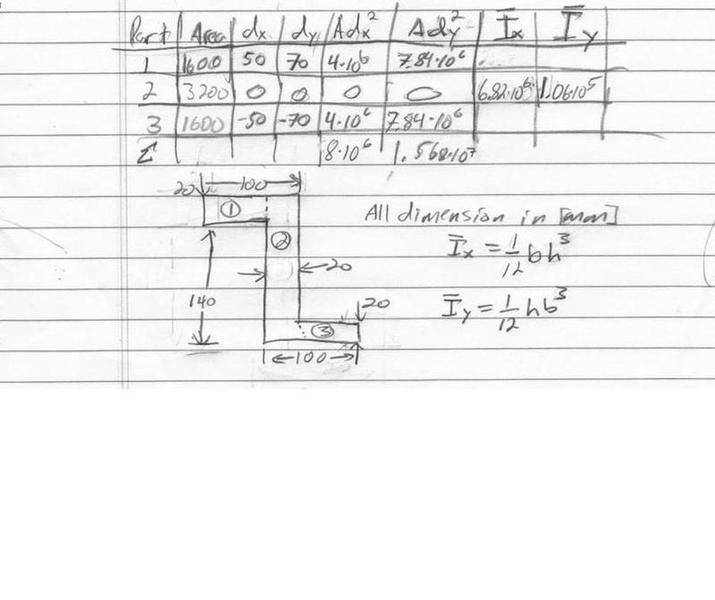 Part Area dx dy Adx² Ady² Īx Īy
1 1600 50 70 4·10⁶ 7.84·10⁶
2 3200 0 0 0 0 6.82·10⁶ 1.06·10⁵
3 1600 -50 -70 4·10⁶ 7.84·10⁶
Σ 8·10⁶ 1.568·10⁷
20 100
① All dimension in [mm]
② Īx = 1/12 bh³
20
140 20 Īy = 1/12 hb³
③
100